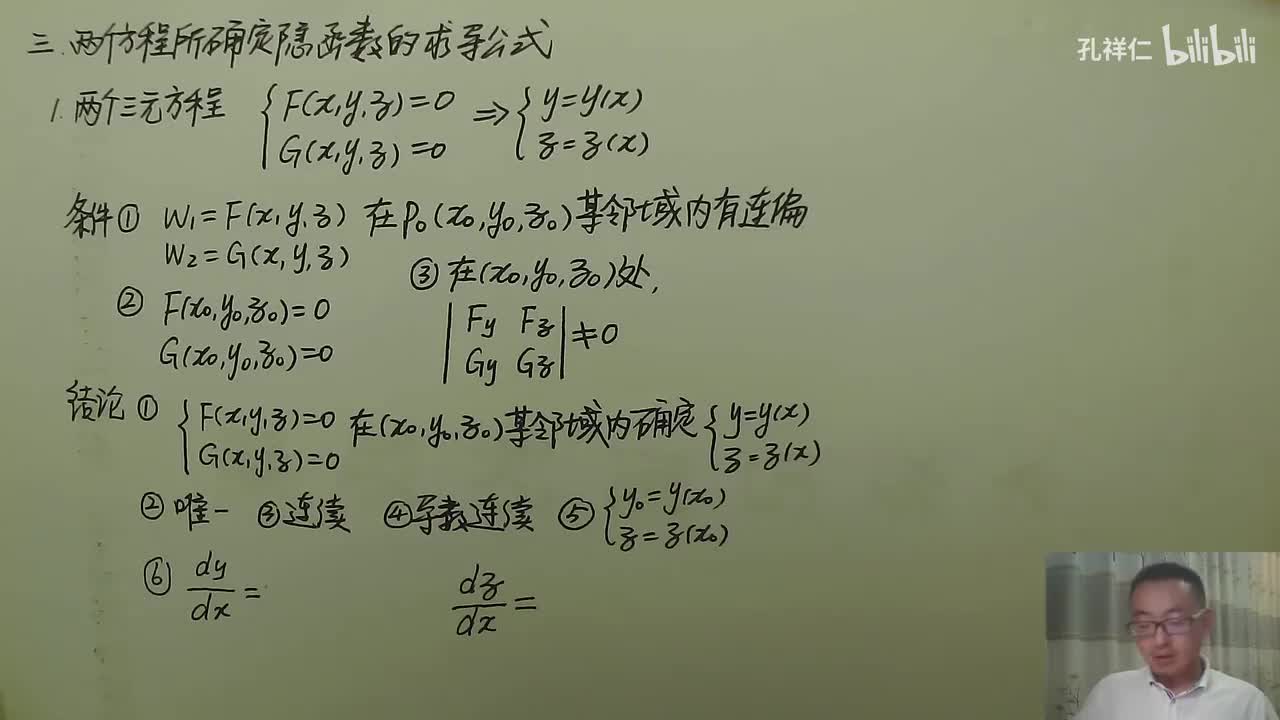 三.两个方程所确定隐函数的求导公式
孔祥仁 bilibili
1.两个三元方程 { F(x,y,z)=0 ⇒ { y=y(x)
G(x,y,z)=0 z=z(x)
条件① W₁=F(x,y,z) 在P₀(x₀,y₀,z₀)某邻域内有连偏
W₂=G(x,y,z)
③在(x₀,y₀,z₀)处,
② F(x₀,y₀,z₀)=0
G(x₀,y₀,z₀)=0
| Fy Fz |
| Gy Gz | ≠0
结论① { F(x,y,z)=0 在(x₀,y₀,z₀)某邻域内确定 { y=y(x)
G(x,y,z)=0 z=z(x)
②唯一 ③连续 ④导数连续 ⑤ { y₀=y(x₀)
z=z(x₀)
⑥ dy/dx= dz/dx=